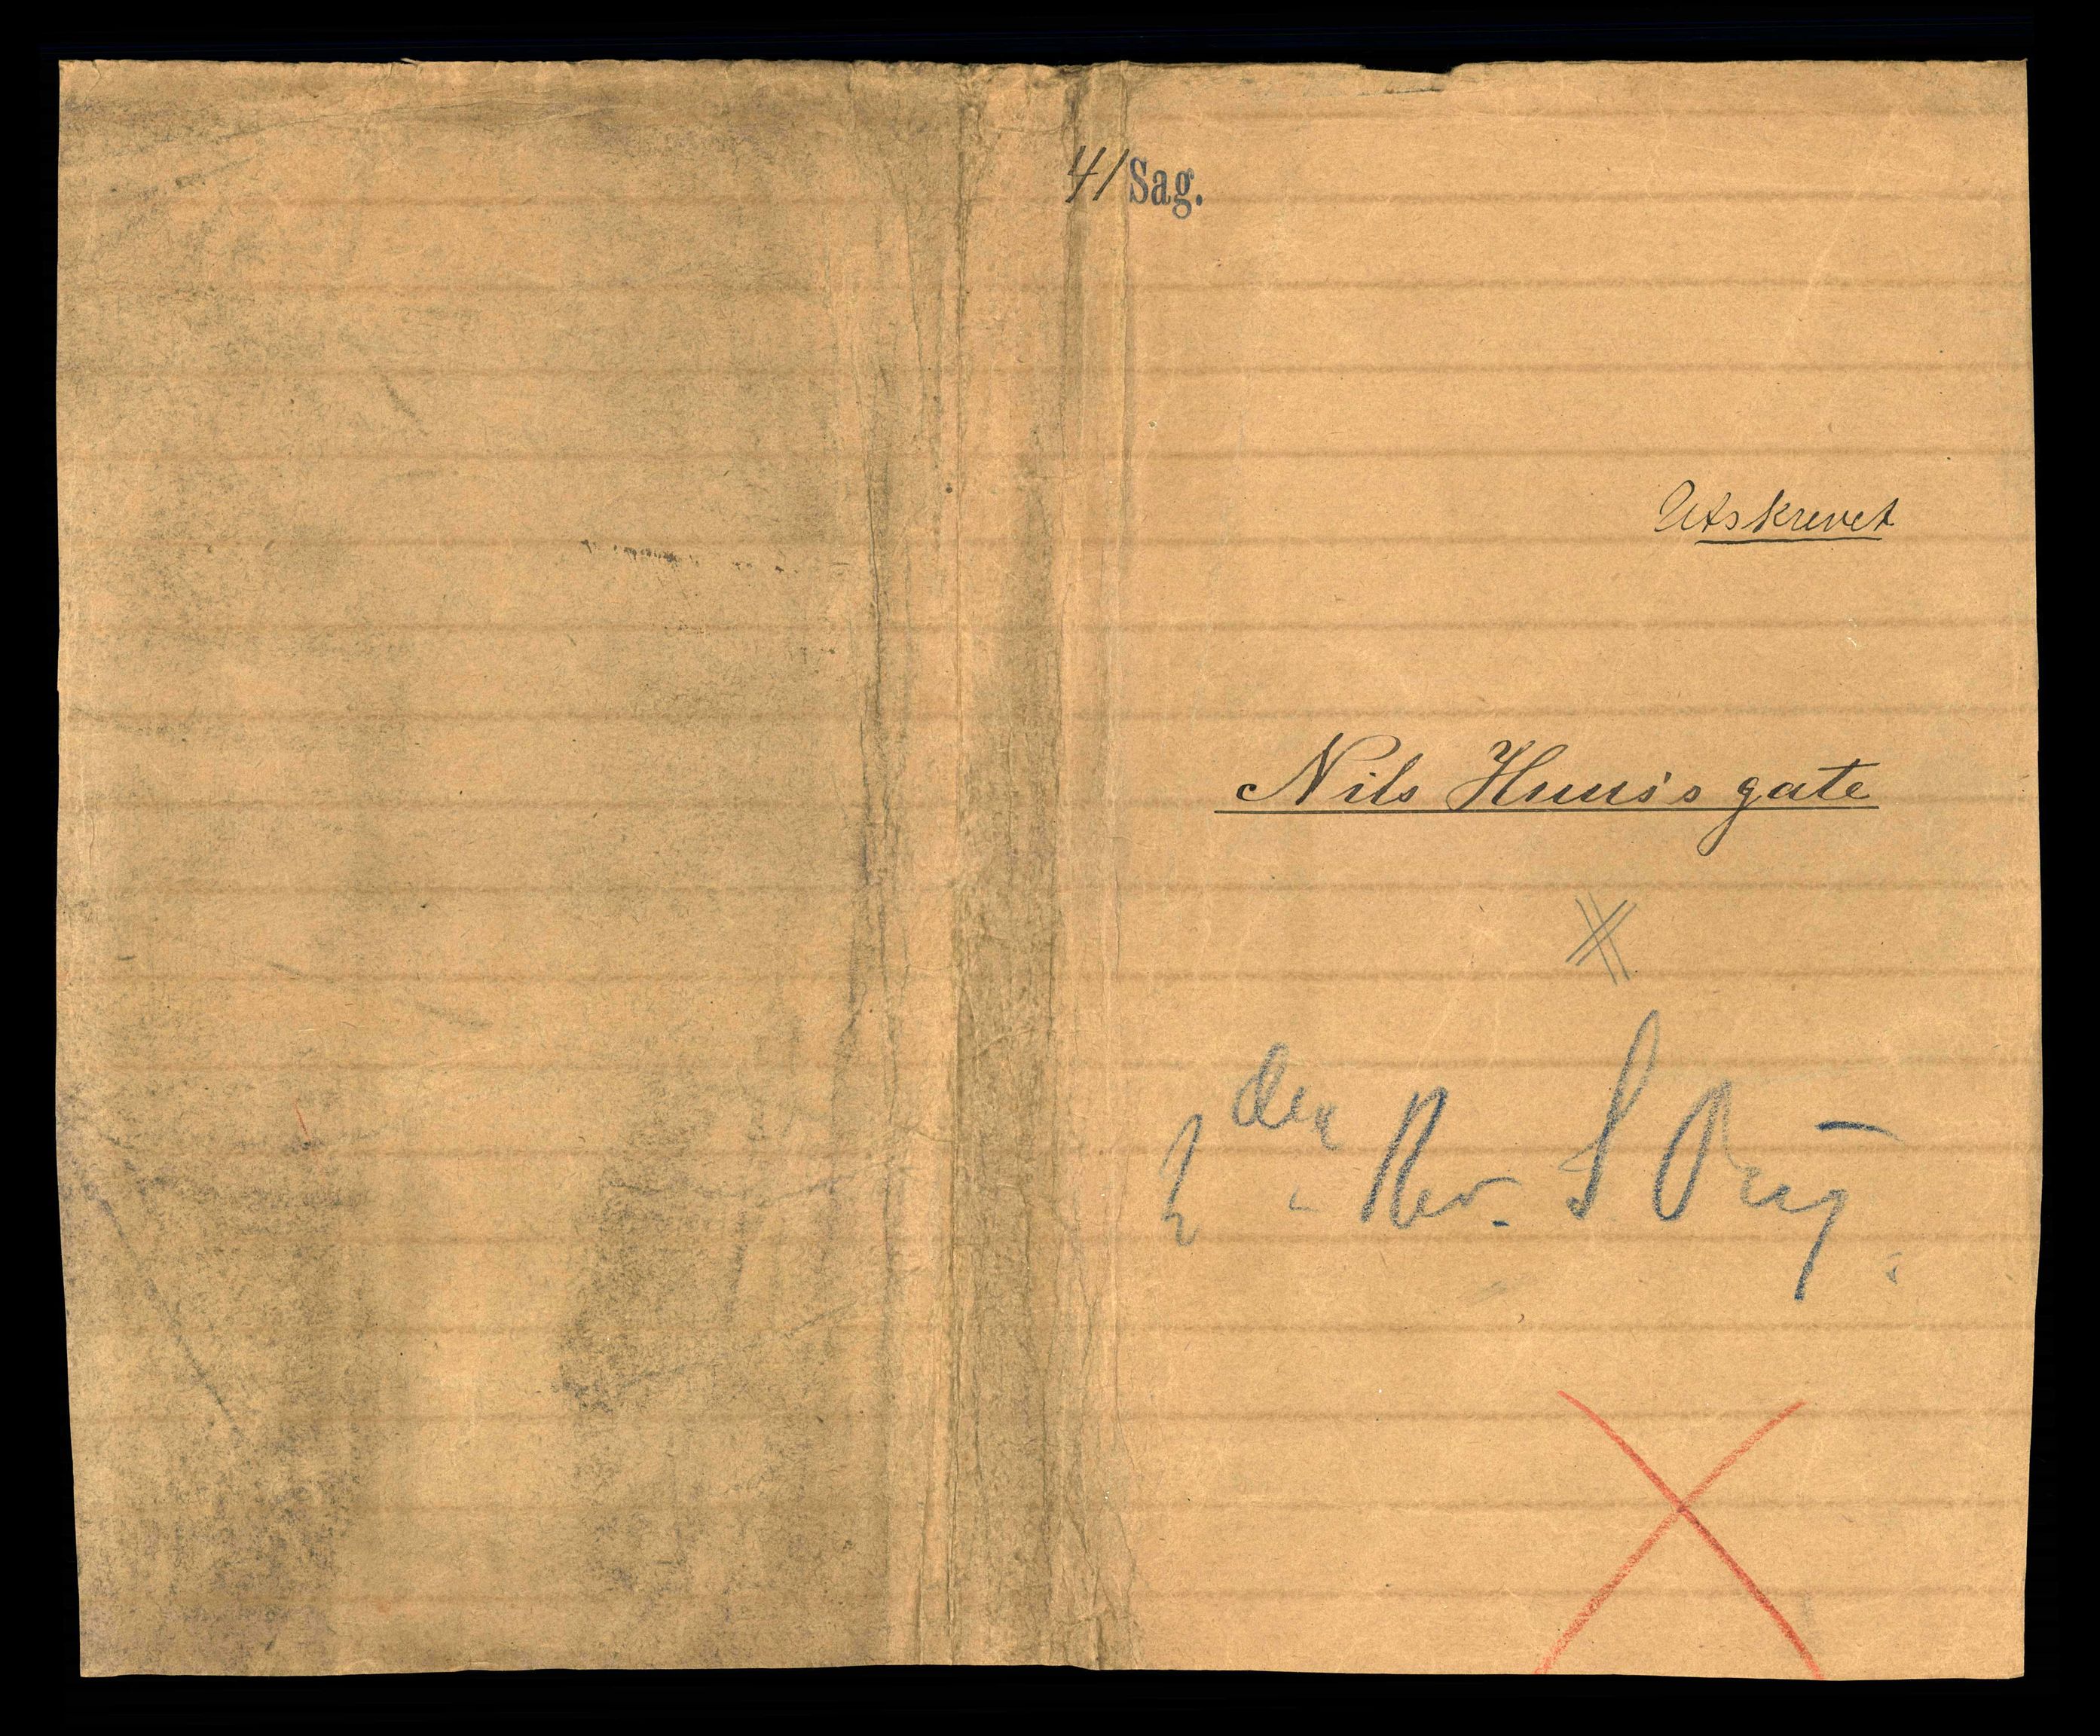 41 Sag.
Utskrevet
Nils Huus's gate
2den Rev. S